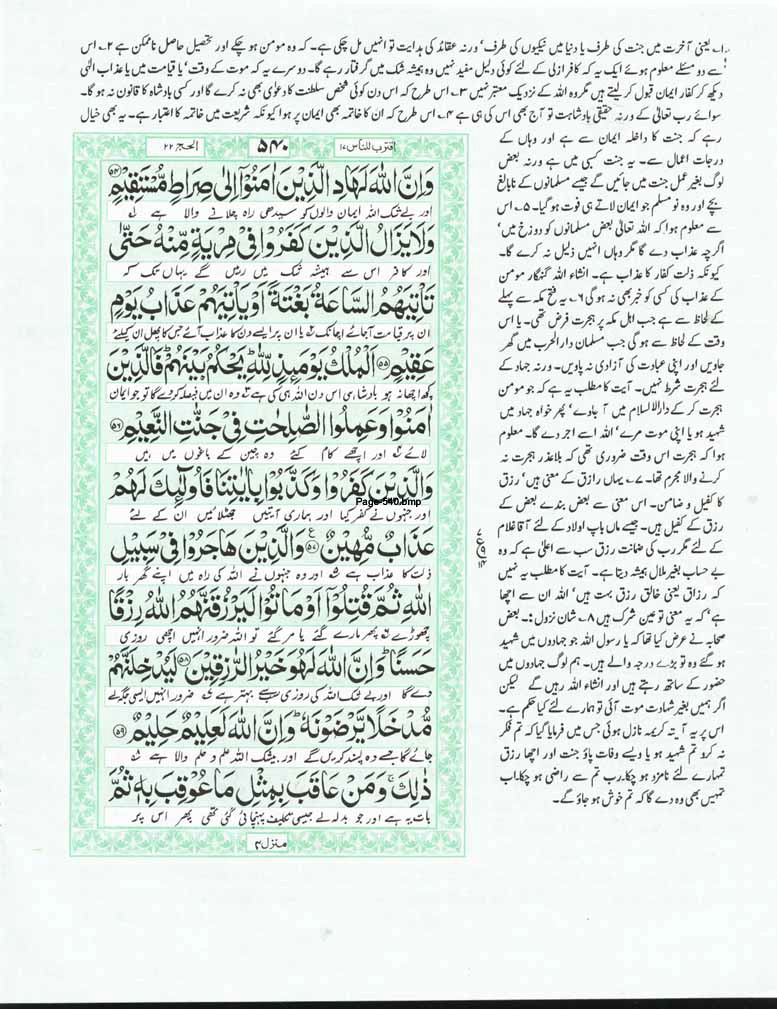 ۱۔ یعنی آخرت میں جنت کی طرف یا دنیا میں نیکیوں کی طرف' ورنہ عقائد کی ہدایت تو انہیں مل چکی ہے۔ کہ وہ مومن ہو چکے اور تحصیل حاصل ناممکن ہے ۲۔ اس
سے دو مسئلے معلوم ہوئے ایک یہ کہ کافر ازلی کے لئے کوئی دلیل مفید نہیں وہ ہمیشہ شک میں گرفتار رہے گا۔ دوسرے یہ کہ موت کے وقت' یا قیامت میں یا عذاب الٰہی
دیکھ کر کفار ایمان قبول کر لیتے ہیں مگر وہ اللہ کے نزدیک معتبر نہیں ۳۔ اس طرح کہ اس دن کوئی شخص سلطنت کا دعوٰی بھی نہ کرے گا اور کسی بادشاہ کا قانون نہ ہو گا۔
سوائے رب تعالٰی کے ورنہ حقیقی بادشاہت تو آج بھی اس کی ہی ہے ۴۔ اس طرح کہ ان کا خاتمہ بھی ایمان پر ہوا کیونکہ شریعت میں خاتمہ کا اعتبار ہے۔ یہ بھی خیال
رہے کہ جنت کا داخلہ ایمان سے ہے اور وہاں کے
درجات اعمال سے۔ یہ جنت کسبی میں ہے ورنہ بعض
لوگ بغیر عمل جنت میں جائیں گے جیسے مسلمانوں کے نابالغ
بچے اور وہ نو مسلم جو ایمان لاتے ہی فوت ہو گیا۔ ۵۔ اس
سے معلوم ہوا کہ اللہ تعالٰی بعض مسلمانوں کو دوزخ میں'
اگرچہ عذاب دے گا مگر وہاں انہیں ذلیل نہ کرے گا۔
کیونکہ ذلت کفار کا عذاب ہے۔ انشاء اللہ گنہگار مومن
کے عذاب کی کسی کو خبر بھی نہ ہو گی ۶۔ یہ فتح مکہ سے پہلے
کے لحاظ سے ہے جب اہل مکہ پر ہجرت فرض تھی۔ یا اس
وقت کے لحاظ سے ہو گی جب مسلمان دارالحرب میں گھر
جاویں اور اپنی عبادت کی آزادی نہ پاویں۔ ورنہ جہاد کے
لئے ہجرت شرط نہیں۔ آیت کا مطلب یہ ہے کہ جو مومن
ہجرت کر کے دارالاسلام میں آ جاوے' پھر خواہ جہاد میں
شہید ہو یا اپنی موت مرے' اللہ اسے اجر دے گا۔ معلوم
ہوا کہ ہجرت اس وقت ضروری تھی کہ بلاعذر ہجرت نہ
کرنے والا مجرم تھا۔ ۷۔ یہاں رازق کے معنی ہیں' رزق
کا کفیل و ضامن۔ اس معنی سے بعض بندے بعض کے
رزق کے کفیل ہیں۔ جیسے ماں باپ اولاد کے لئے آقا غلام
کے لئے مگر رب کی ضمانت رزق سب سے اعلٰی ہے کہ وہ
بے حساب بغیر ملال ہمیشہ دیتا ہے۔ آیت کا مطلب یہ نہیں
کہ رزاق یعنی خالق رزق بہت ہیں' اللہ ان سے اچھا
ہے' کہ یہ معنی تو عین شرک ہیں ۸۔ شان نزول :۔ بعض
صحابہ نے عرض کیا تھا کہ یا رسول اللہ جو جہادوں میں شہید
ہو گئے وہ تو بڑے درجہ والے ہیں۔ ہم لوگ جہادوں میں
حضور کے ساتھ رہتے ہیں اور انشاء اللہ رہیں گے لیکن
اگر ہمیں بغیر شہادت موت آئی تو ہمارے لئے کیا حکم ہے۔
اس پر یہ آیتہ کریمہ نازل ہوئی جس میں فرمایا گیا کہ تم فکر
نہ کرو تم شہید ہو یا ویسے وفات پاؤ جنت اور اچھا رزق
تمہارے لئے نامزد ہو چکا۔ رب تم سے راضی ہو چکا۔ اب
تمہیں بھی وہ دے گا کہ تم خوش ہو جاؤ گے۔
اقترب للناس ۱۷ ۵۴۰ الحجز ۲۲
وَاِنَّ اللّٰهَ لَهَادِ الَّذِيْنَ اٰمَنُوْۤا اِلٰى صِرَاطٍ مُّسْتَقِيْمٍ ۵۴
اور بے شک اللہ ایمان والوں کو سیدھی راہ چلانے والا ہے ۱
وَلَا يَزَالُ الَّذِيْنَ كَفَرُوْا فِىْ مِرْيَةٍ مِّنْهُ حَتّٰى
اور کافر اس سے ہمیشہ شک میں رہیں گے یہاں تک کہ
تَاْتِيَهُمُ السَّاعَةُ بَغْتَةً اَوْ يَاْتِيَهُمْ عَذَابُ يَوْمٍ
ان پر قیامت آ جائے اچانک ۲ یا ان پر ایسے دن کا عذاب آئے جس کا پھل ان کیلئے
عَقِيْمٍ ۵۵ اَلْمُلْكُ يَوْمَئِذٍ لِّلّٰهِ ؕ يَحْكُمُ بَيْنَهُمْ ؕ فَالَّذِيْنَ
کچھ اچھا نہ ہو بادشاہی اس دن اللہ ہی کی ہے ۳ وہ ان میں فیصلہ کر دے گا تو جو ایمان
اٰمَنُوْا وَعَمِلُوا الصّٰلِحٰتِ فِىْ جَنّٰتِ النَّعِيْمِ ۵۶
لائے ۴ اور اچھے کام کئے وہ چین کے باغوں میں ہیں
وَالَّذِيْنَ كَفَرُوْا وَكَذَّبُوْا بِاٰيٰتِنَا فَاُولٰٓئِكَ لَهُمْ
Page-540.bmp
اور جنہوں نے کفر کیا اور ہماری آیتیں جھٹلائیں ان کے لئے
عَذَابٌ مُّهِيْنٌ ۵۷ ع وَالَّذِيْنَ هَاجَرُوْا فِىْ سَبِيْلِ
ذلت کا عذاب ہے ۵ اور وہ جنہوں نے اللہ کی راہ میں اپنے گھر بار
اللّٰهِ ثُمَّ قُتِلُوْۤا اَوْ مَاتُوْا لَيَرْزُقَنَّهُمُ اللّٰهُ رِزْقًا
چھوڑے ۶ پھر مارے گئے یا مر گئے تو اللہ ضرور انہیں اچھی روزی
حَسَنًا ؕ وَاِنَّ اللّٰهَ لَهُوَ خَيْرُ الرّٰزِقِيْنَ ۵۸ لَيُدْخِلَنَّهُمْ
دے گا اور بے شک اللہ کی روزی سب سے بہتر ہے ۷ ضرور انہیں ایسی جگہ لے
مُّدْخَلًا يَّرْضَوْنَهٗ ؕ وَاِنَّ اللّٰهَ لَعَلِيْمٌ حَلِيْمٌ ۵۹
جائے گا جسے وہ پسند کریں گے اور بیشک اللہ علم و حلم والا ہے ۸
ذٰلِكَ ۚ وَمَنْ عَاقَبَ بِمِثْلِ مَا عُوْقِبَ بِهٖ ثُمَّ
بات یہ ہے اور جو بدلہ لے جیسی تکلیف پہنچائی گئی تھی پھر اس پر
منزل ۴
۷
ع ۹
۱۴